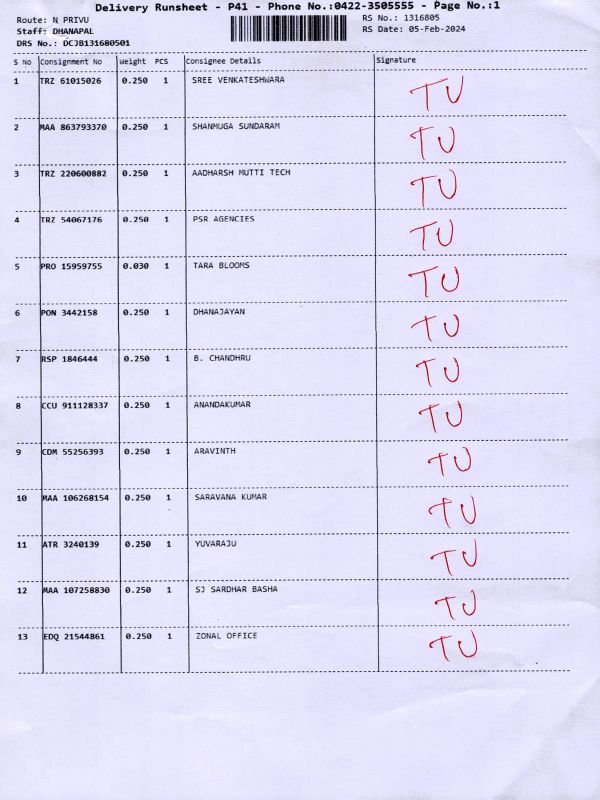 Delivery Runsheet - P41 - Phone No.:0422-3505555 - Page No.:1
Route: N PRIVU RS No.: 1316805
Staff: DHANAPAL RS Date: 05-Feb-2024
DRS No.: DCJB131680501
S No Consignment No Weight PCS Consignee Details Signature
1 TRZ 61015026 0.250 1 SREE VENKATESHWARA TU
2 MAA 863793370 0.250 1 SHANMUGA SUNDARAM TU
3 TRZ 220600882 0.250 1 AADHARSH MUTTI TECH TU
4 TRZ 54067176 0.250 1 PSR AGENCIES TU
5 PRO 15959755 0.030 1 TARA BLOOMS TU
6 PON 3442158 0.250 1 DHANAJAYAN TU
7 RSP 1846444 0.250 1 B. CHANDHRU TU
8 CCU 911128337 0.250 1 ANANDAKUMAR TU
9 CDM 55256393 0.250 1 ARAVINTH TU
10 MAA 106268154 0.250 1 SARAVANA KUMAR TU
11 ATR 3240139 0.250 1 YUVARAJU TU
12 MAA 107258830 0.250 1 SJ SARDHAR BASHA TU
13 EDQ 21544861 0.250 1 ZONAL OFFICE TU